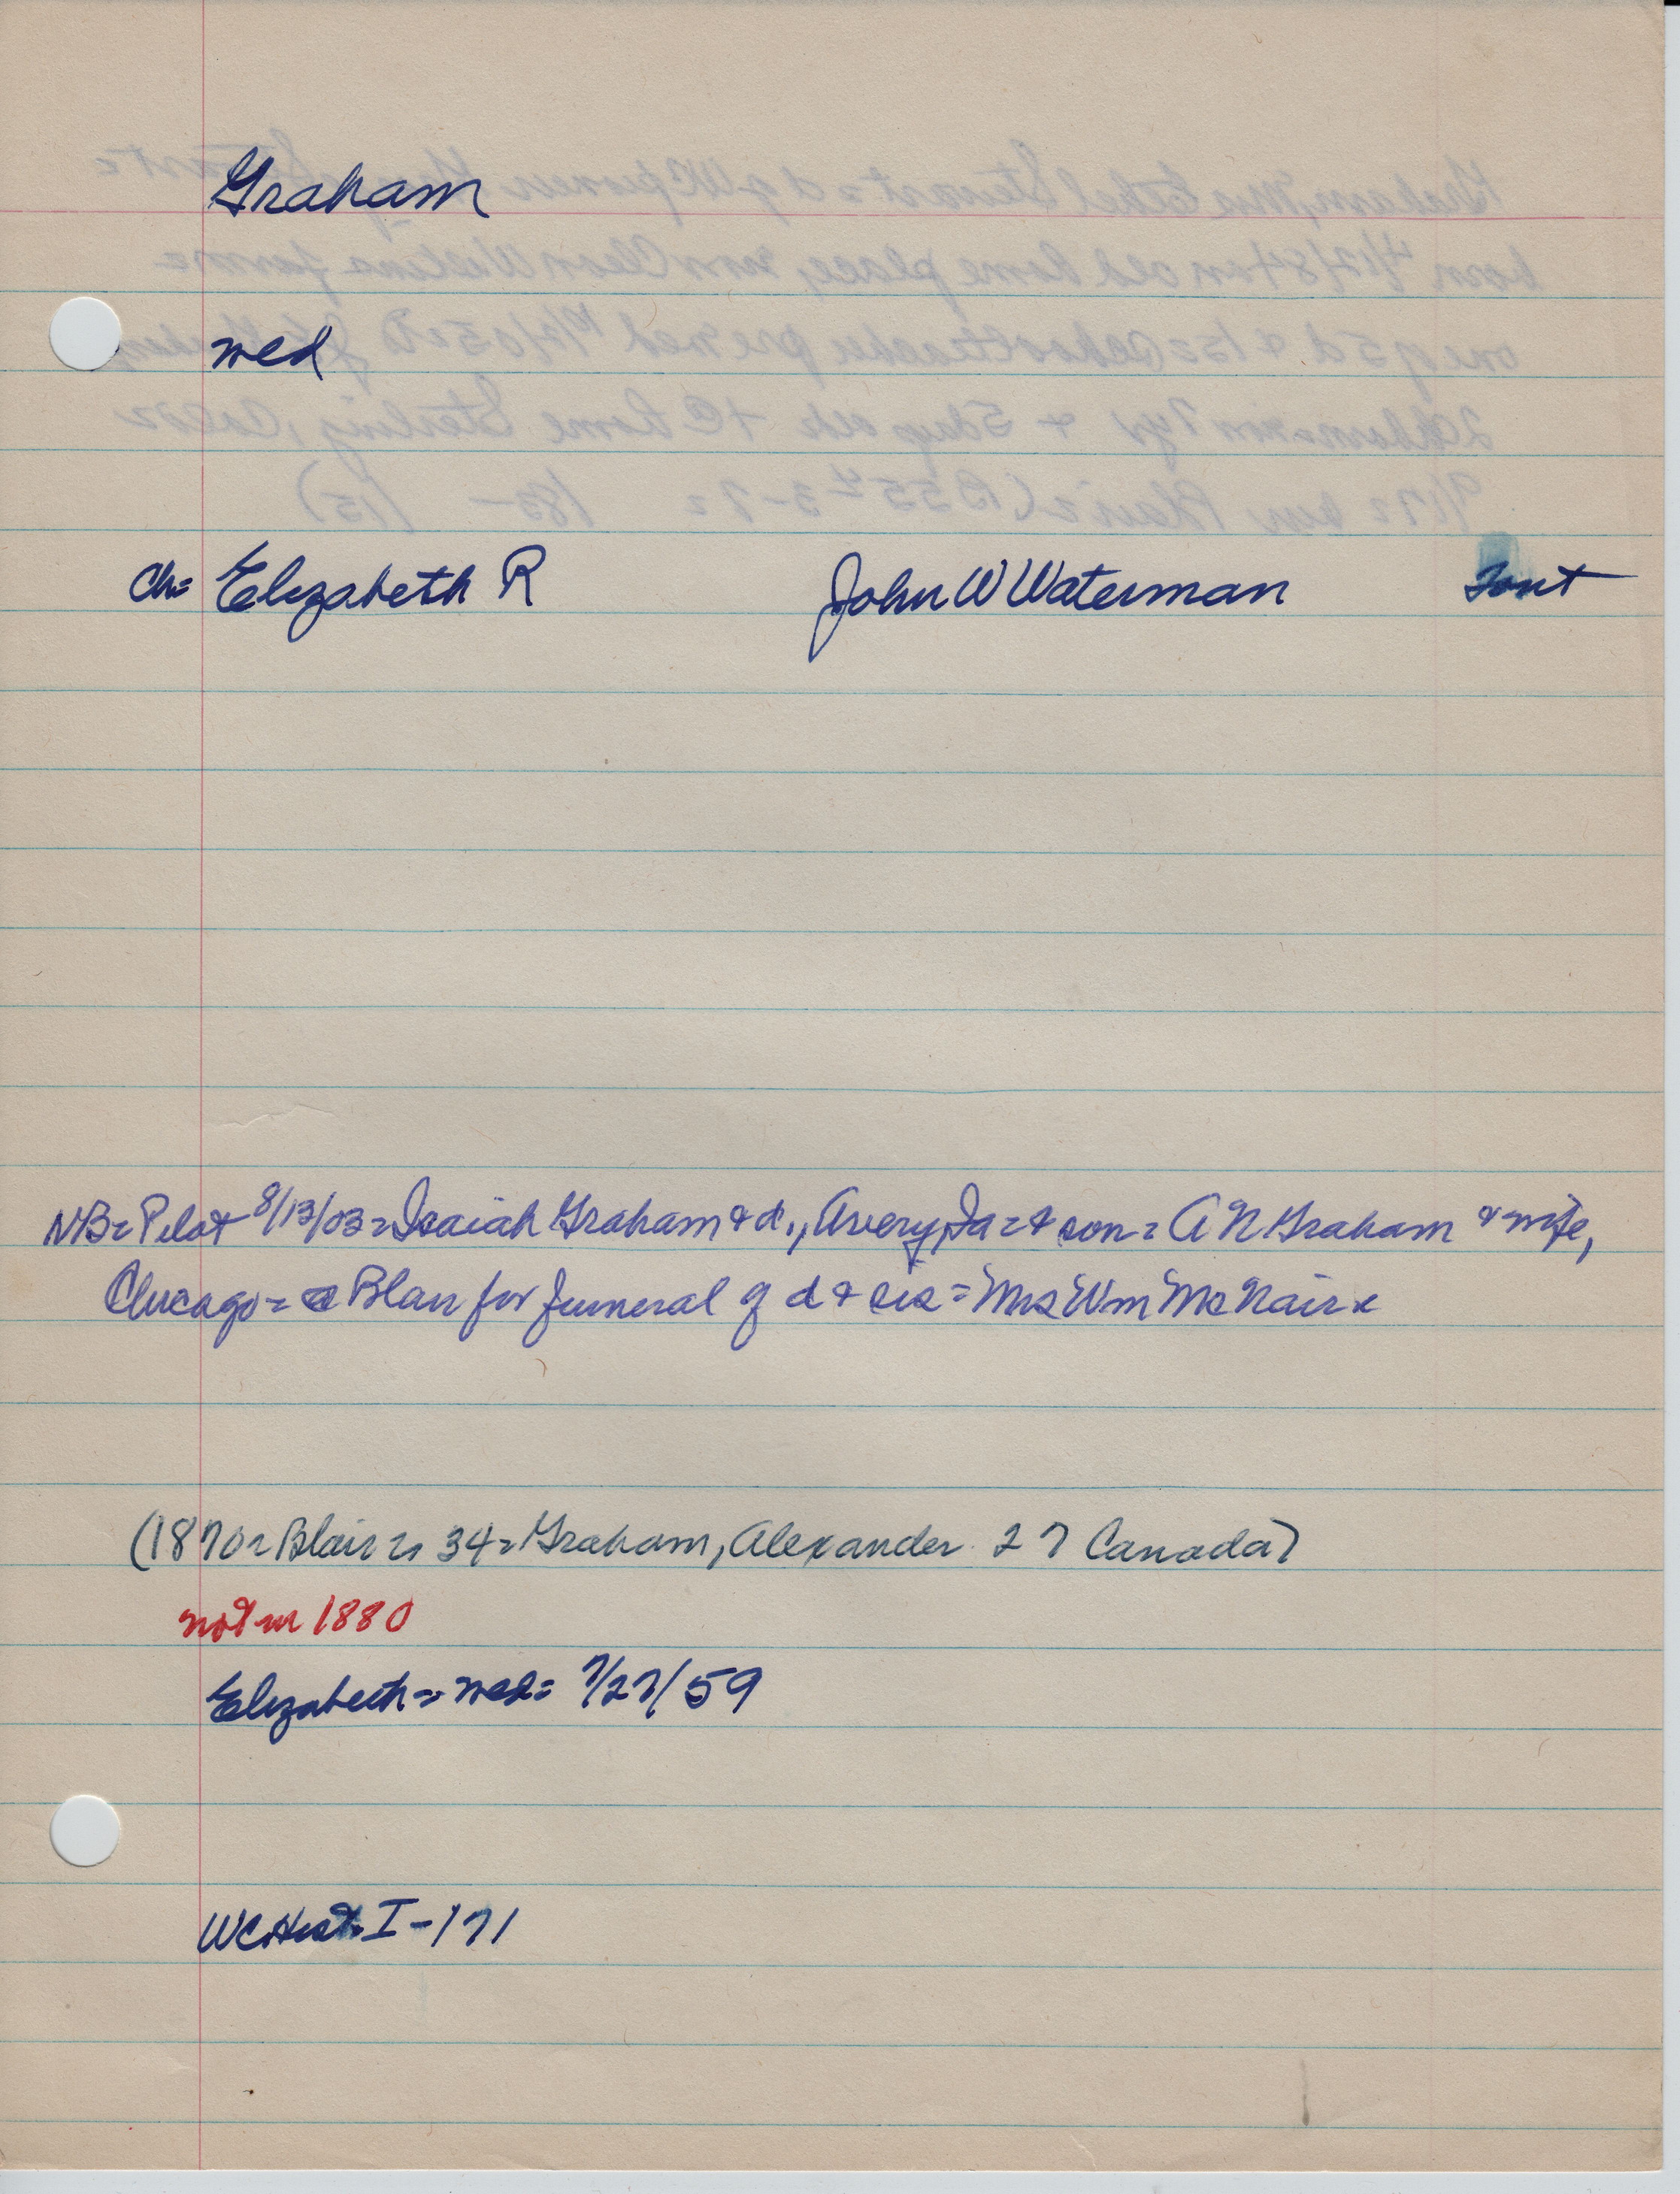 Graham
med
Ch= Elizabeth R John W Waterman Font
NB= Pilot 8/13/03= Isaiah Graham & d., Avery, Ia= & son= A N Graham & wife,
Chicago= Blair for funeral of d & sis= Mrs Wm McNair=
(1870= Blair= 34= Graham, Alexander 27 Canada)
not in 1880
Elizabeth= med= 7/27/59
WC Hist= I-171